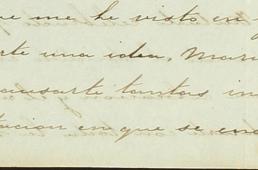 ue me he visto en
rte una idea, Mari
ausarte tantas in
tacion en que se en